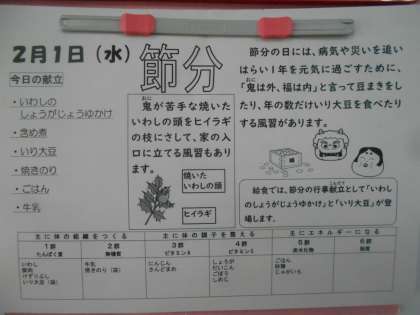 2月1日（水）
節分
今日の献立
・いわしの
しょうがじょうゆかけ
・含め煮
・いり大豆
・焼きのり
・ごはん
・牛乳
鬼が苦手な焼いた
いわしの頭をヒイラギ
の枝にさして、家の入
口に立てる風習もあり
ます。
おに
焼いた
いわしの頭
ヒイラギ
節分の日には、病気や災いを追い
はらい1年を元気に過ごすために、
「鬼は外、福は内」と言って豆まきをし
たり、年の数だけいり大豆を食べたり
する風習があります。
給食では、節分の行事献立として「いわし
のしょうがじょうゆかけ」と「いり大豆」が
登場します。
主に体の組織をつくる
主に体の調子を整える
主にエネルギーになる
1群
2群
3群
4群
5群
6群
たんぱく質
無機質
ビタミンA
ビタミンC
炭水化物
脂質
いわし
豚肉
けずりぶし
いり大豆（袋）
牛乳
焼きのり（袋）
にんじん
さんどまめ
しょうが
だいこん
ごぼう
しめじ
ごはん
砂糖
じゃがいも